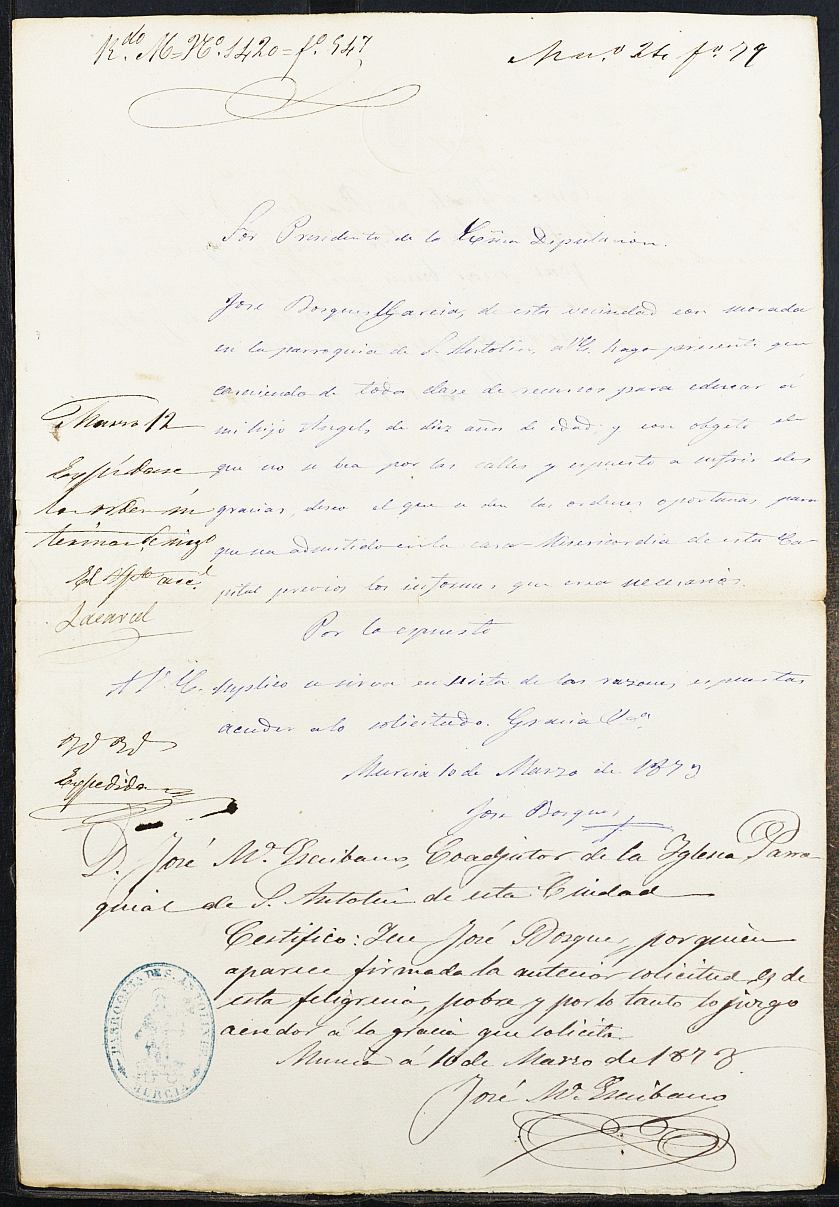 Rdo. M= No. 1420= fo. 547
Mno. 24 fo. 79
Sor Presidente de la Exma Diputacion.
Jose Bosques Garcia, de esta vecindad con morada
en la parroquia de S. Antolin, a V.E. hago presente que
careciendo de toda clase de recursos para educar á
mi hijo Angel, de diez años de edad, y con objeto de
que no se vea por las calles y espuesto a sufrir des
gracias, deseo el que se den las ordenes oportunas para
que sea admitido en la casa Misericordia de esta Ca-
pital previos los informes que crea necesarios.
Por lo espuesto
A V.E. suplico se sirva en vista de las razones espuestas
acceder a lo solicitado. Gracia &a.
Murcia 10 de Marzo de 1873
Jose Bosques
Marzo 12
Espídase
la orden in
terina de ingo
El Dipdo. accl.
Lacarcel
Expedida
D. José Ma. Escribano, Coadjutor de la Yglesia Parro-
quial de S. Antolin de esta Ciudad
Certifico: Que José Bosques, por quien
aparece firmada la anterior solicitud es de
esta feligresia, pobre y por lo tanto lo juzgo
acredor á la gracia que solicita.
Murcia á 10 de Marzo de 1873.
José Ma. Escribano
PARROQUIA DE S. ANTOLIN DE MURCIA